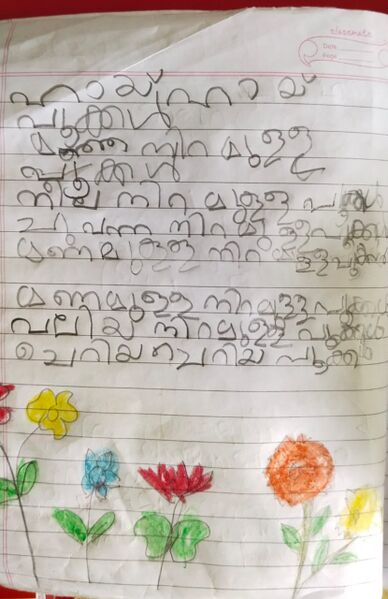 classmate
Date
Page
ഹായ് ഹായ്
പൂക്കൾ
മഞ്ഞ നിറമുള്ള
പൂക്കൾ
നീല നിറമുള്ള പൂക്കൾ
ചുവന്ന നിറമുള്ള പൂക്കൾ
മണമുള്ള നിറമുള്ള പൂക്കൾ
മണമുള്ള നിറമുള്ള പൂക്കൾ
വലിയ നിറമുള്ള പൂക്കൾ
ചെറിയ ചെറിയ പൂക്കൾ